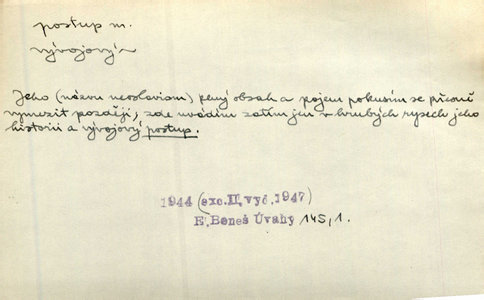 postup m.
vývojový
Jeho (názvu neoslavism) plný obsah a pojem pokusím se přesně
vymezit později; zde uvádím zatím jen v hrubých rysech jeho
historii a vývojový postup.
1944 (exc.II,vyd.1947)
E.Beneš Úvahy 145,1.